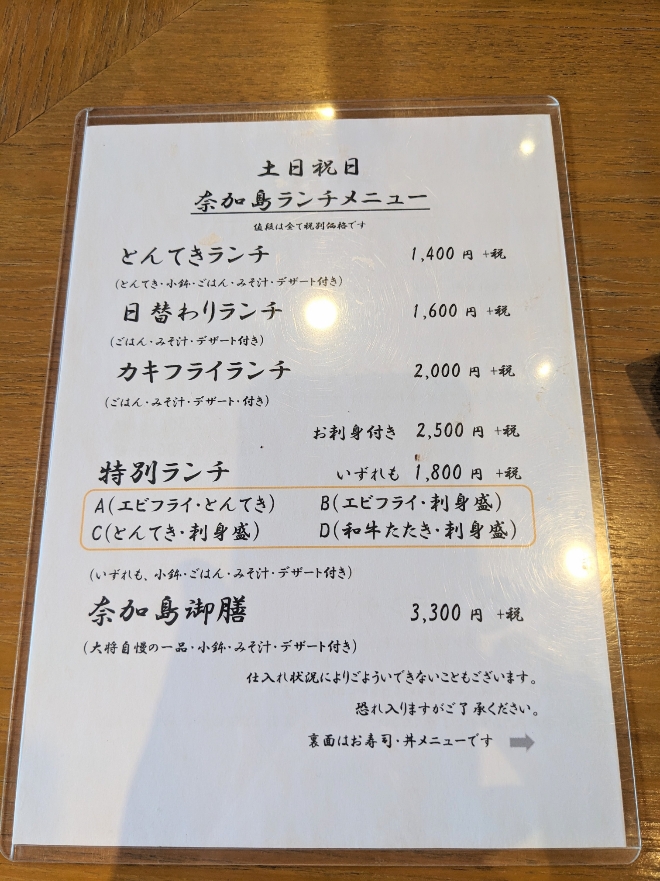 土日祝日
奈加島ランチメニュー
値段は全て税別価格です
とんてきランチ 1,400円 +税
(とんてき・小鉢・ごはん・みそ汁・デザート付き)
日替わりランチ 1,600円 +税
(ごはん・みそ汁・デザート付き)
カキフライランチ 2,000円 +税
(ごはん・みそ汁・デザート・付き)
お刺身付き 2,500円 +税
特別ランチ いずれも 1,800円 +税
A(エビフライ・とんてき) B(エビフライ・刺身盛)
C(とんてき・刺身盛) D(和牛たたき・刺身盛)
(いずれも、小鉢・ごはん・みそ汁・デザート付き)
奈加島御膳 3,300円 +税
(大将自慢の一品・小鉢・みそ汁・デザート付き)
仕入れ状況によりごよういできないこともございます。
恐れ入りますがご了承ください。
裏面はお寿司・丼メニューです